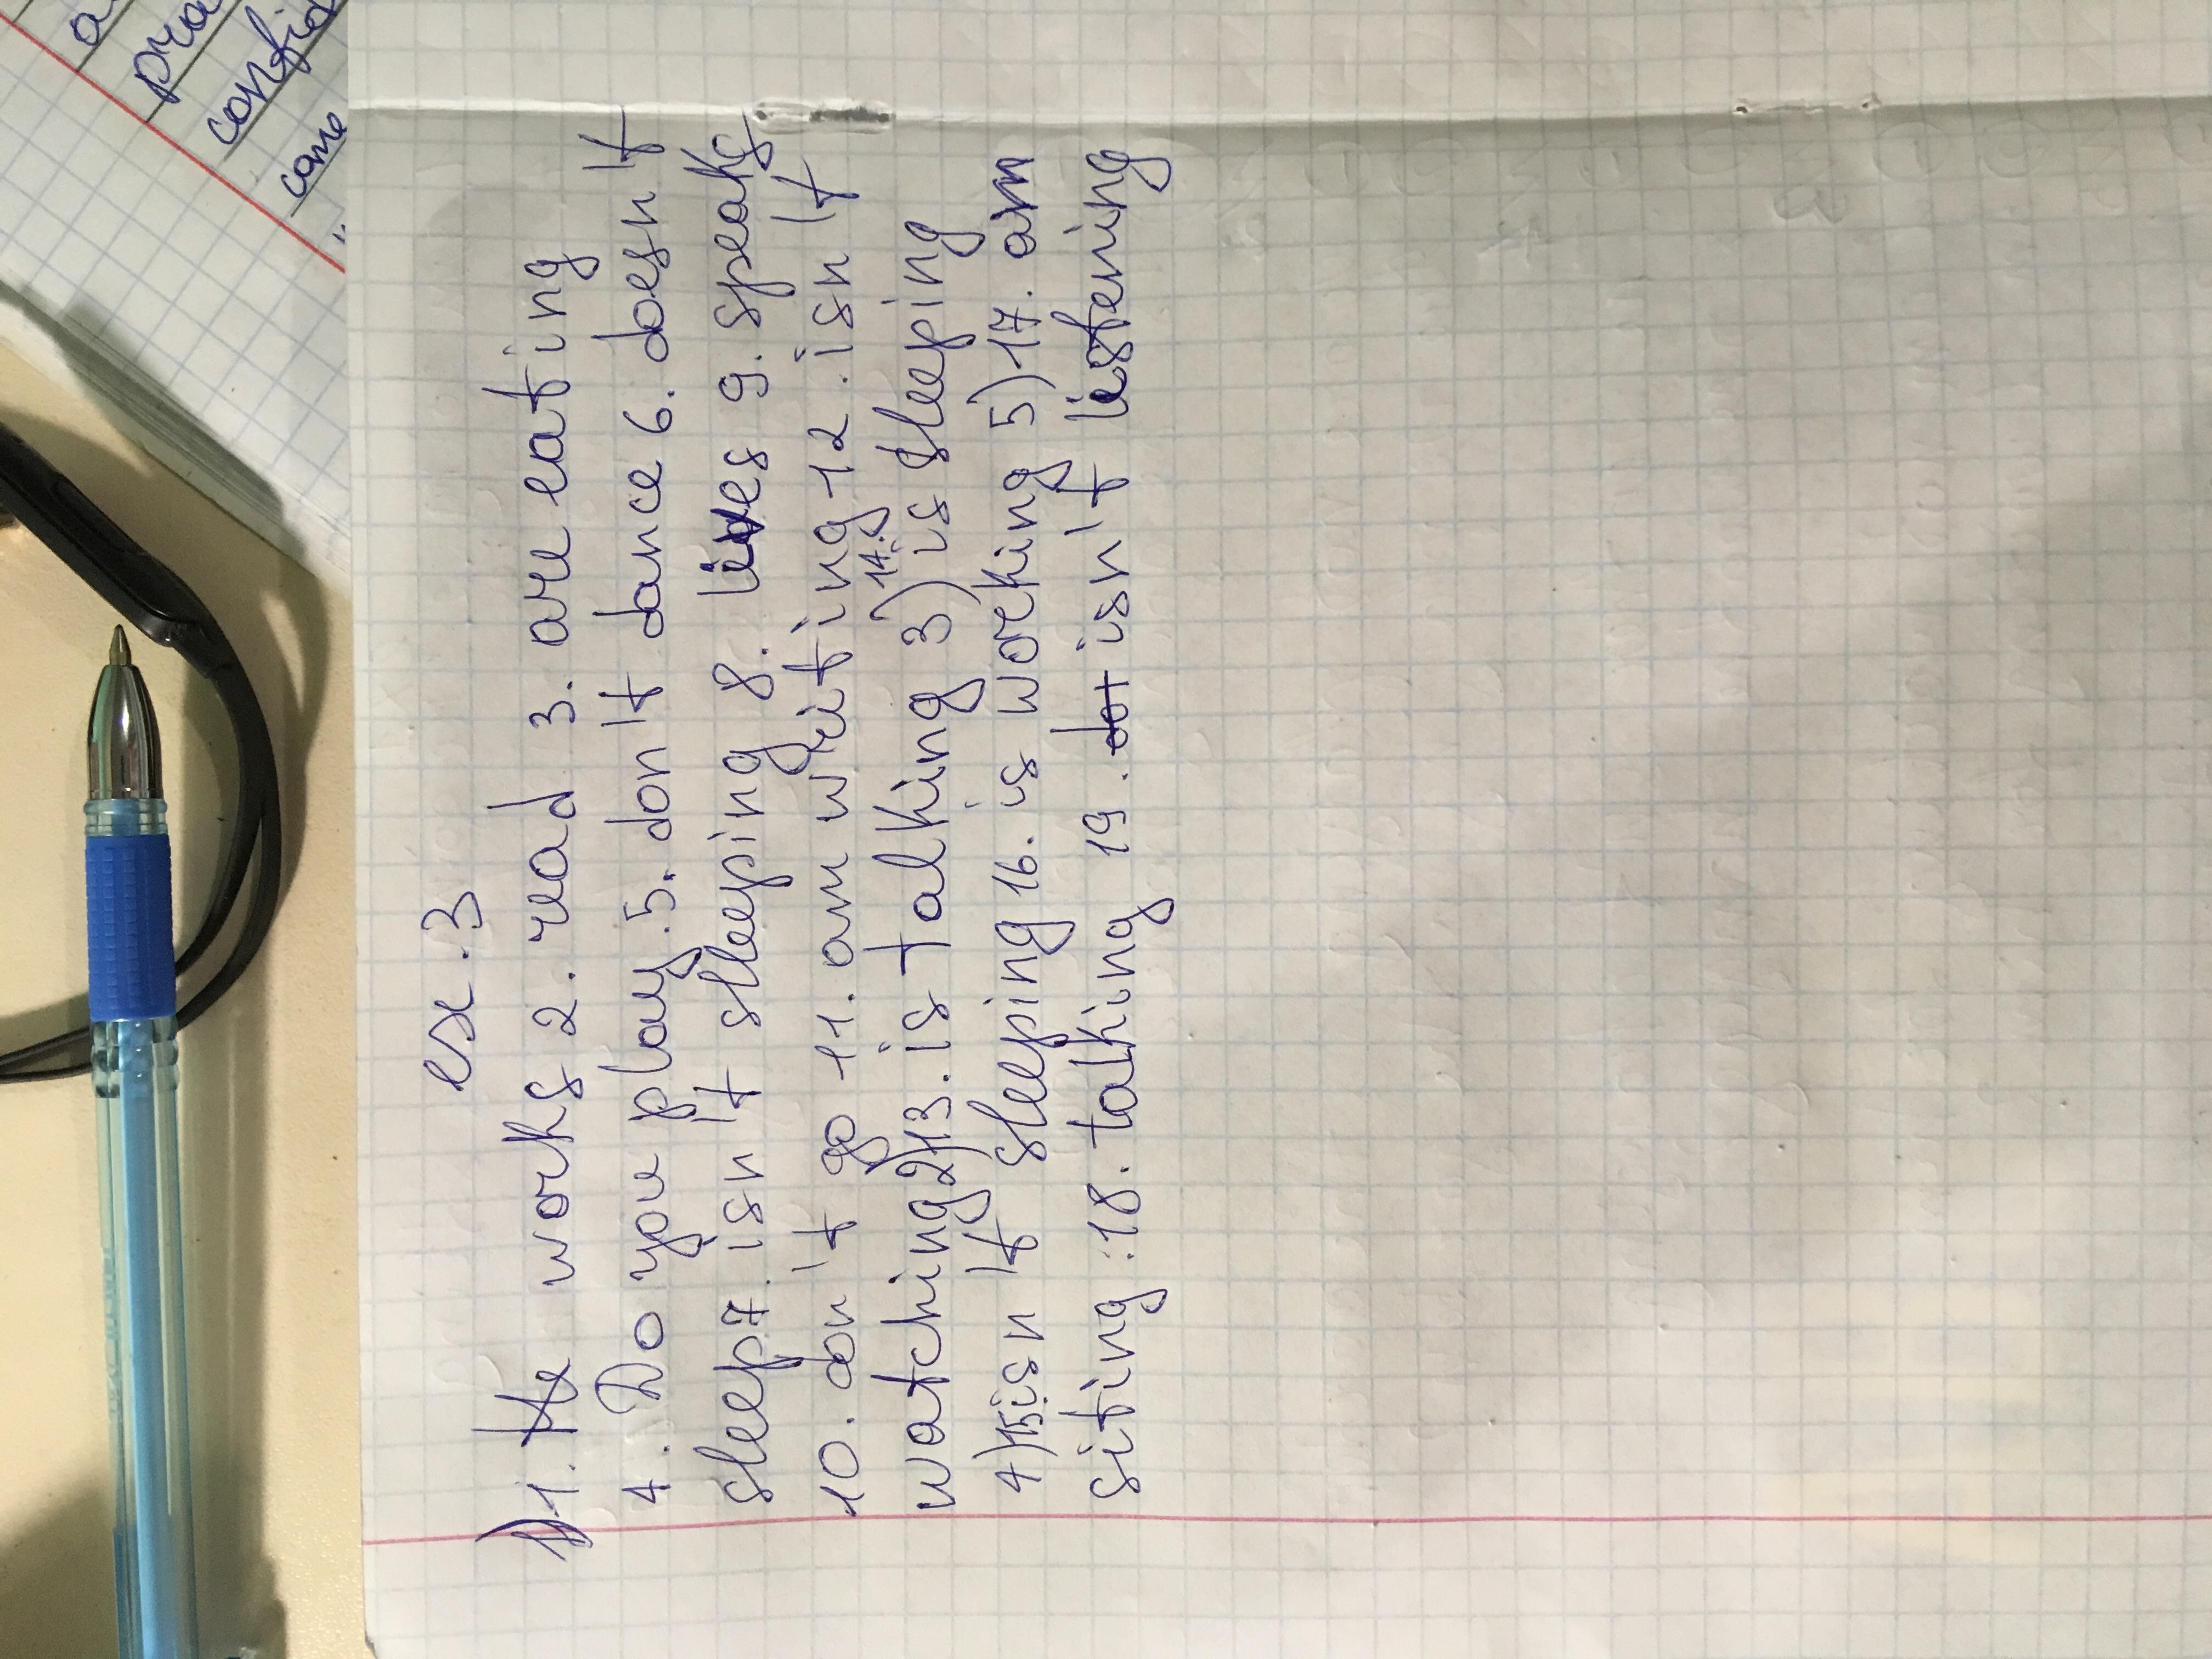 ex.3
1) 1. He works 2. read 3. are eating
4. Do you play. 5. don't dance 6. doesn't
sleep 7. isn't sleeping 8. lives 9. speaks
10. don't go 11. am writing 12. isn't
watching 2) 13. is talking 3) 14. is sleeping
4) 15. isn't sleeping 16. is working 5) 17. am
siting. 18. talking 19. dot isn't listening
come